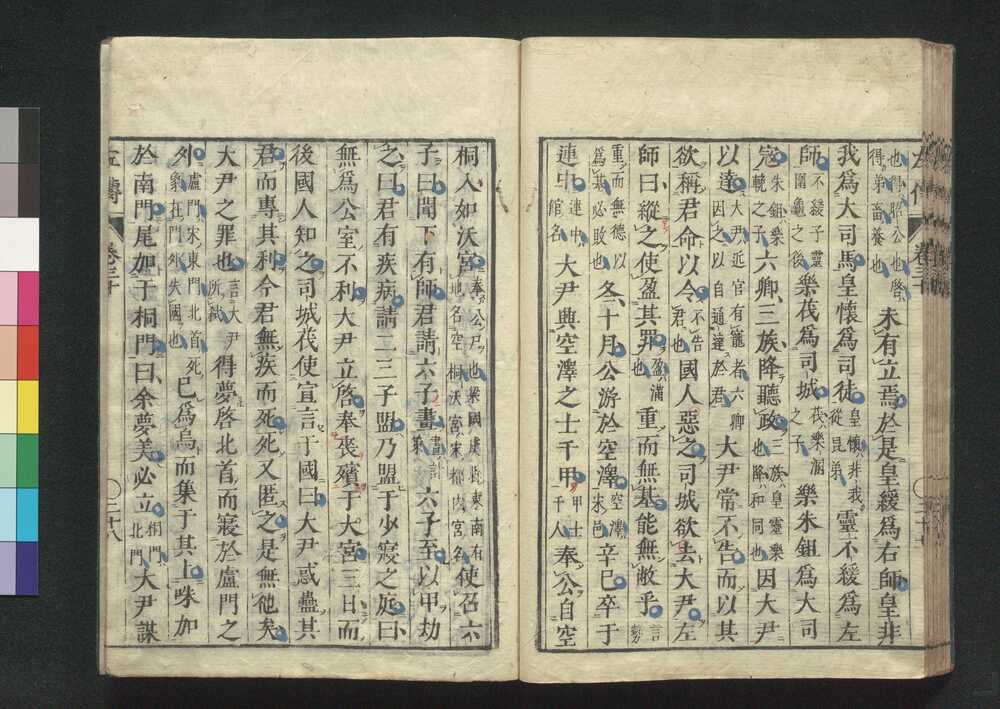 也得昭公也啓
得弟畜養也未有立焉於是皇緩爲右師皇非
我爲大司馬皇懷爲司徒皇懷非我
從昆弟靈不緩爲左
師不緩子靈
圍龜之後樂茷爲司城茷樂溷
之子樂朱鉏爲大司
寇朱鉏樂
輓之子六卿三族降聽政三族皇靈樂
也降和同也因大尹
以達大尹近官有寵者六卿
因之以自通達於君大尹常不告而以其
欲稱君命以令不告
君也國人惡之司城欲去大尹左
師曰縱之使盈其罪盈滿
也重而無基能無敝乎言
勢
重而無德以
爲基必敗也冬十月公游於空澤空澤
宋邑辛巳卒于
連中連中
館名大尹興空澤之士千甲甲士
千人奉公自空
桐入如沃宮奉公尸也梁國虞縣東南有
地名空桐沃宮宋都內宮名使召六
子曰聞下有師君請六子畫畫計
策六子至以甲劫
之曰君有疾病請二三子盟乃盟于少寢之庭曰
無爲公室不利大尹立啓奉喪殯于大宮三日而
後國人知之司城茷使宣言于國曰大尹惑蠱其
君而專其利今君無疾而死死又匿之是無他矣
大尹之罪也言大尹
所弑得夢啓北首而寢於盧門之
外盧門宋東門北首死
象在門外失國也己爲烏而集于其上咮加
於南門尾加于桐門曰余夢美必立桐門
北門大尹謀
左傳 卷三十 二十八